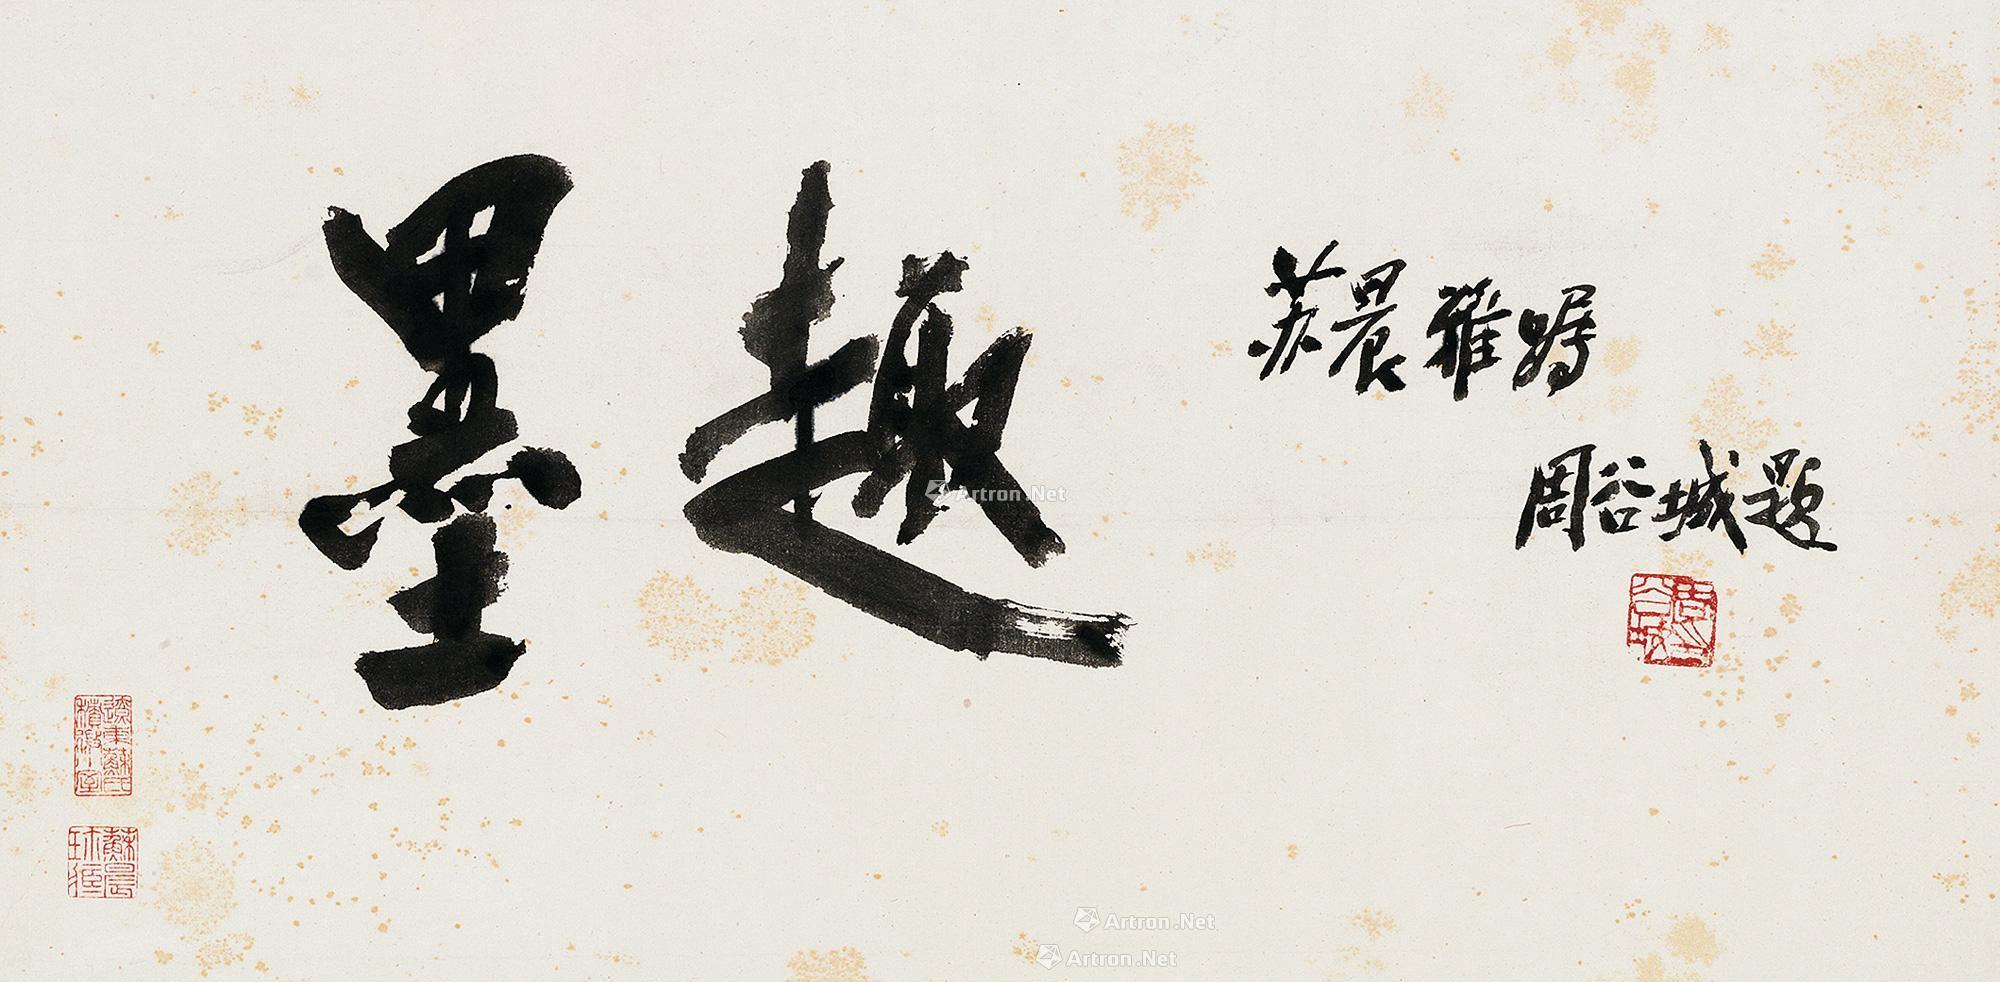 墨趣
苏晨雅嘱
周谷城题
周谷城印
苏晨珍藏
Artron.Net
Artron.Net
Artron.Net